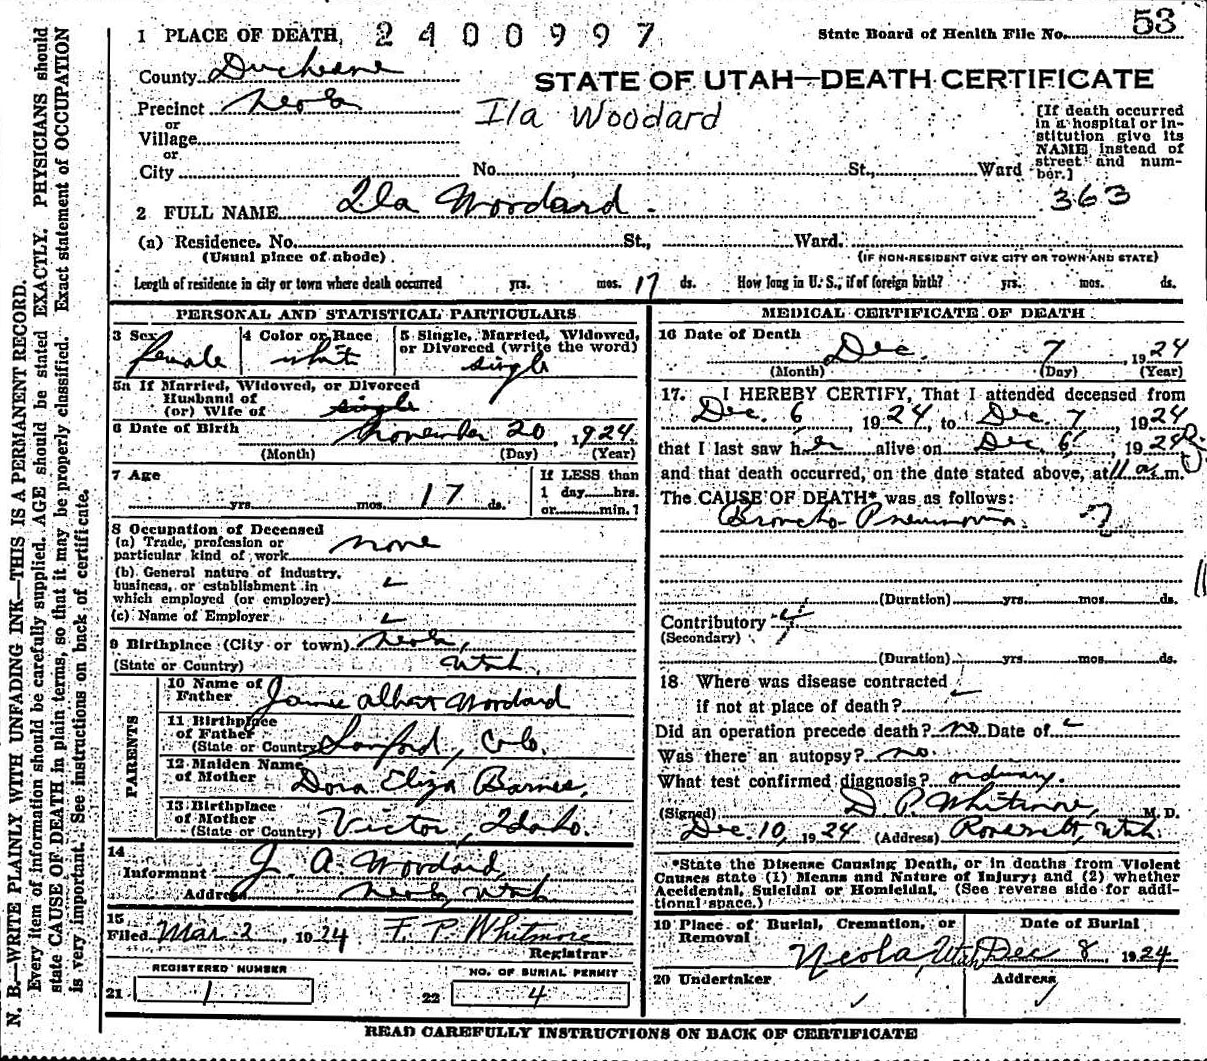 1 PLACE OF DEATH 2400997
State Board of Health File No. 53
County Duchesne
STATE OF UTAH—DEATH CERTIFICATE
Precinct Neola
Ila Woodard
or
Village
or
City No. St., Ward
[If death occurred
in a hospital or in-
stitution give its
NAME instead of
street and num-
ber.]
2 FULL NAME Ila Woodard. 363
(a) Residence. No. St., Ward.
(Usual place of abode) (IF NON-RESIDENT GIVE CITY OR TOWN AND STATE)
Length of residence in city or town where death occurred yrs. mos. 17 ds. How long in U. S., if of foreign birth? yrs. mos. ds.
PERSONAL AND STATISTICAL PARTICULARS
3 Sex female
4 Color or Race white
5 Single, Married, Widowed,
or Divorced (write the word)
single
5a If Married, Widowed, or Divorced
Husband of
(or) Wife of single
6 Date of Birth November 20, 1924
(Month) (Day) (Year)
7 Age
yrs. mos. 17 ds.
If LESS than
1 day hrs.
or min.?
8 Occupation of Deceased
(a) Trade, profession or
particular kind of work none
(b) General nature of industry,
business, or establishment in
which employed (or employer)
(c) Name of Employer
9 Birthplace (City or town) Neola,
(State or Country) Utah
PARENTS
10 Name of
Father James Albert Woodard
11 Birthplace
of Father
(State or Country) Sanford, Colo.
12 Maiden Name
of Mother Dora Eliza Barnes,
13 Birthplace
of Mother
(State or Country) Victor, Idaho.
14
Informant J. A. Woodard,
Address Neola, Utah
15
Filed Mar 2, 1924 F. P. Whitmore
Registrar
REGISTERED NUMBER
21 1
NO. OF BURIAL PERMIT
22 4
MEDICAL CERTIFICATE OF DEATH
16 Date of Death
Dec. 7, 1924
(Month) (Day) (Year)
17. I HEREBY CERTIFY, That I attended deceased from
Dec. 6, 1924, to Dec. 7, 1924
that I last saw her alive on Dec. 6, 1924
and that death occurred, on the date stated above, at 11 a.m.
The CAUSE OF DEATH* was as follows:
Broncho Pneumonia.
(Duration) yrs. mos. ds.
Contributory
(Secondary)
(Duration) yrs. mos. ds.
18 Where was disease contracted
if not at place of death?
Did an operation precede death? no Date of
Was there an autopsy? no.
What test confirmed diagnosis? ordinary.
(Signed) D. P. Whitmore, M. D.
Dec. 10, 1924 (Address) Roosevelt, Utah
*State the Disease Causing Death, or in deaths from Violent
Causes state (1) Means and Nature of Injury; and (2) whether
Accidental, Suicidal or Homicidal. (See reverse side for addi-
tional space.)
19 Place of Burial, Cremation, or
Removal
Neola, Utah
Date of Burial
Dec 8, 1924
20 Undertaker
Address
READ CAREFULLY INSTRUCTIONS ON BACK OF CERTIFICATE
N. B.—WRITE PLAINLY WITH UNFADING INK—THIS IS A PERMANENT RECORD.
Every item of information should be carefully supplied. AGE should be stated EXACTLY. PHYSICIANS should
state CAUSE OF DEATH in plain terms, so that it may be properly classified. Exact statement of OCCUPATION
is very important. See instructions on back of certificate.